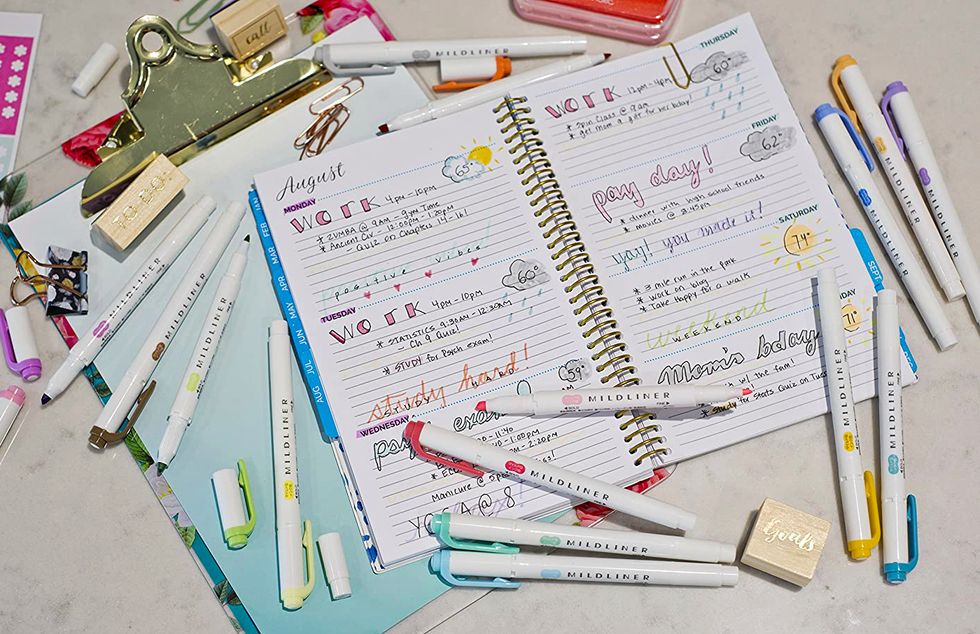 call
TO DO
MILDLINER
August
MONDAY
WORK 4pm-10pm
* ZUMBA @ 9AM - Gym Time
* Ancient Civ - 12:00PM - 1:20PM
- QUIZ on Chapters 14-16!
65°
positive vibes!
TUESDAY
WORK 4PM - 10PM
* STATISTICS 9:30AM - 12:30AM
- Ch 9 Quiz!
* STUDY for Psych exam!
60°
study hard!
WEDNESDAY
59°
11:40
1:00PM
2:20PM
Manicure @
YOGA @ 8
JAN
FEB
MAR
APR
MAY
JUN
JUL
AUG
THURSDAY
WORK 12pm-4pm
* Spin Class @ 9am
* get mom a gift for her bday!
60°
FRIDAY
62°
pay day!
* dinner with high school friends
* movies @ 8:45pm
yay! you made it!
SATURDAY
74°
* 3 mile run in the park
* Work on blog
* Take Happy for a walk
weekend
WEEKEND!
71°
Mom's bday
w/ the fam!
* Study for Stats Quiz on Tues
SEPT
MILDLINER
MILDLINER
MILDLINER
MILDLINER
MILDLINER
MILDLINER
MILDLINER
MILDLINER
MILDLINER
Goals